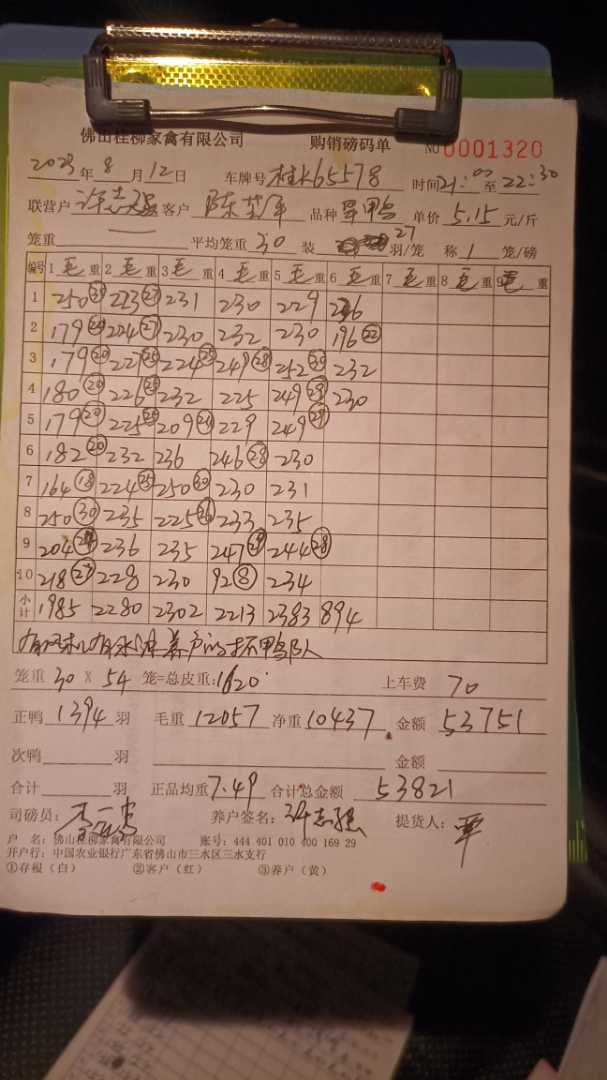 佛山桂柳家禽有限公司 购销磅码单 NO 0001320
2023年8月12日 车牌号 桂K65578 时间21:00至22:30
联营户 许志强 客户 陈 品种 旱鸭 单价 5.15 元/斤
笼重 一 平均笼重 30 装 27 羽/笼 称 1 笼/磅
编号 1毛重 2毛重 3毛重 4毛重 5毛重 6毛重 7毛重 8毛重 9毛重
1 250(29) 223(27) 231 230 229 236
2 179(20) 224(27) 230 232 230 196(22)
3 179(20) 227(25) 224(25) 249(28) 252(30) 232
4 180(20) 226(25) 232 225 249(29) 230
5 179(20) 225(25) 209(24) 229 249(29)
6 182(20) 232 236 246(28) 230
7 164(18) 224(25) 250(30) 230 231
8 250(30) 235 225(26) 233 235
9 204(24) 236 235 247(29) 244(28)
10 218(27) 228 230 92(8) 234
小计 1985 2280 2302 2213 2383 894
笼重 30 × 54 笼=总皮重:1620 上车费 70
正鸭 1394 羽 毛重 12057 净重 10437 金额 53751
次鸭 羽 金额
合计 羽 正品均重 7.49 合计总金额 53821
司磅员: 养户签名: 许志强 提货人: 覃
户 名: 佛山桂柳家禽有限公司 账号: 444 401 010 400 169 29
开户行: 中国农业银行广东省佛山市三水区三水支行
①存根(白) ②客户(红) ③养户(黄)